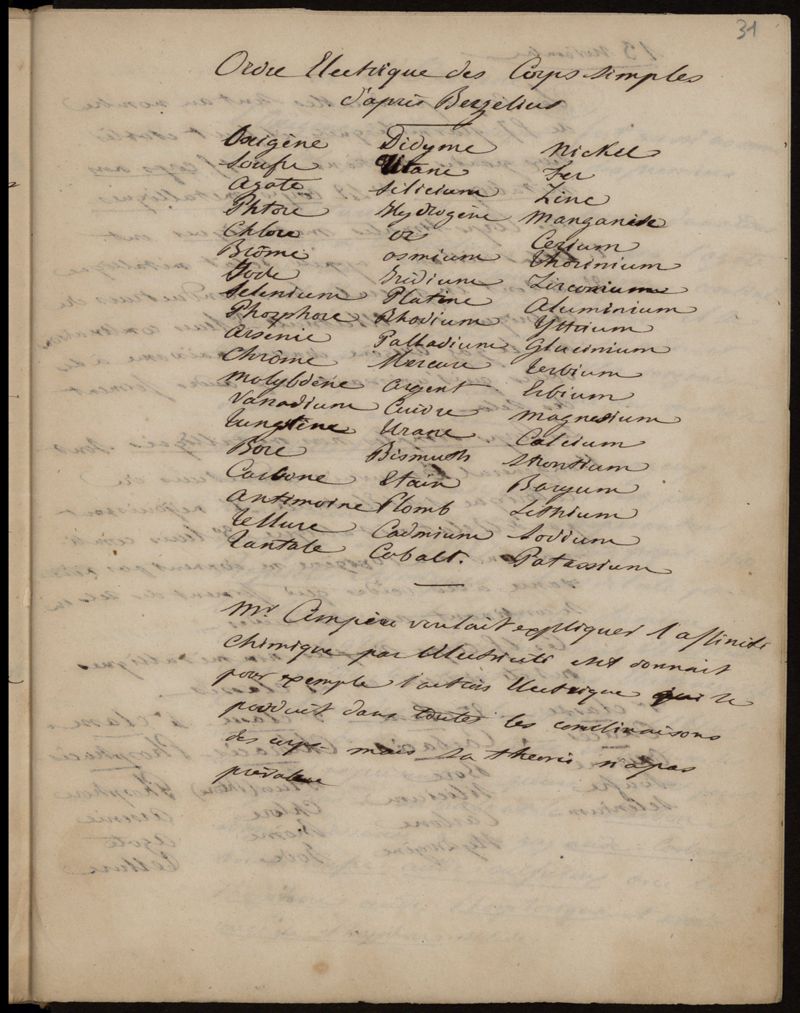 31
Ordre Electrique des Corps simples
d'après Berzélius
Oxigène
Soufre
Azote
Phtore
Chlore
Brôme
Iode
Selenium
Phosphore
Arsénic
Chrôme
Molybdène
Vanadium
Tungstène
Bore
Carbone
Antimoine
Tellure
Tantale
Didyme
Titane
Silicium
Hydrogène
Or
osmium
Iridium
Platine
Rhodium
Palladium
Mercure
Argent
Cuivre
Urane
Bismuth
Etain
Plomb
Cadmium
Cobalt.
Nickel
Fer
Zinc
Manganèse
Cerium
Thorinium
Zirconium
Aluminium
Yttrium
Glucinium
Terbium
Erbium
Magnesium
Calcium
Strontium
Baryum
Lithium
Sodium
Potassium
Mr Ampère voulait expliquer l'affinité
chimique par l'électricité et donnait
pour exemple l'action électrique qui se
produit dans toutes les combinaisons
des corps mais sa théorie n'a pas
prévalue